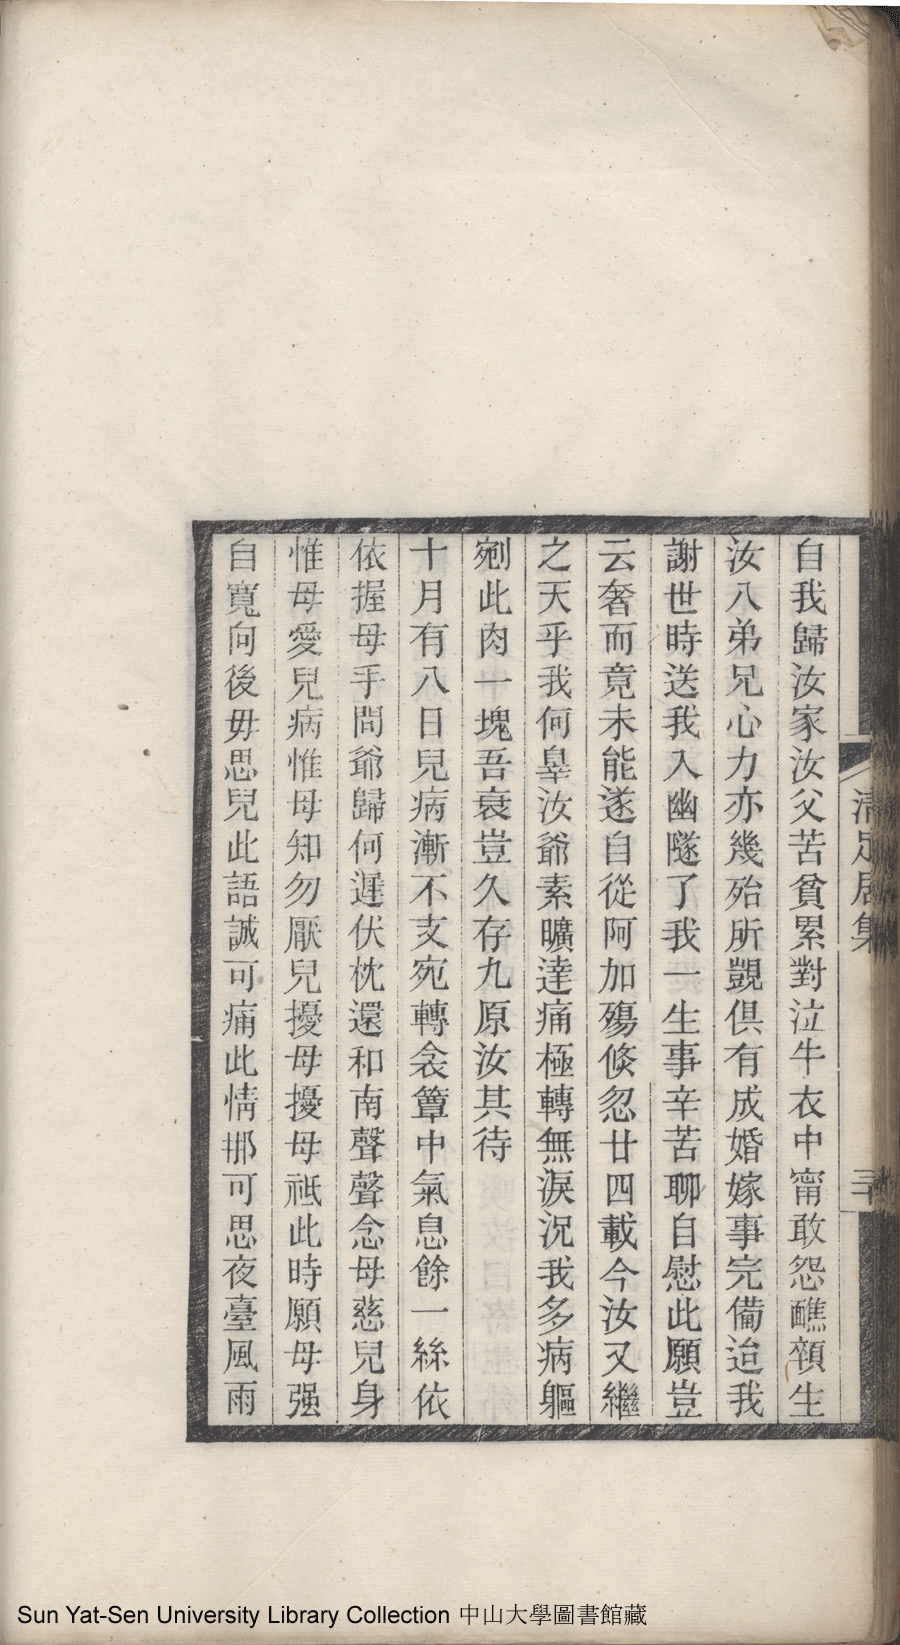 自我歸汝家汝父苦貧累對泣牛衣中甯敢怨醮顇生
汝八弟兄心力亦幾殆所覬俱有成婚嫁事完備迨我
謝世時送我入幽隧了我一生事辛苦聊自慰此願豈
云奢而竟未能遂自從阿加殤倏忽廿四載今汝又繼
之天乎我何辠汝爺素曠達痛極轉無淚況我多病軀
剜此肉一塊吾衰豈久存九原汝其待
十月有八日兒病漸不支宛轉衾簟中氣息餘一絲依
依握母手問爺歸何遲伏枕還和南聲聲念母慈兒身
惟母愛兒病惟母知勿厭兒擾母擾母祗此時願母强
自寬向後毋思兒此語誠可痛此情那可思夜臺風雨
清足居集
三十
Sun Yat-Sen University Library Collection 中山大學圖書館藏